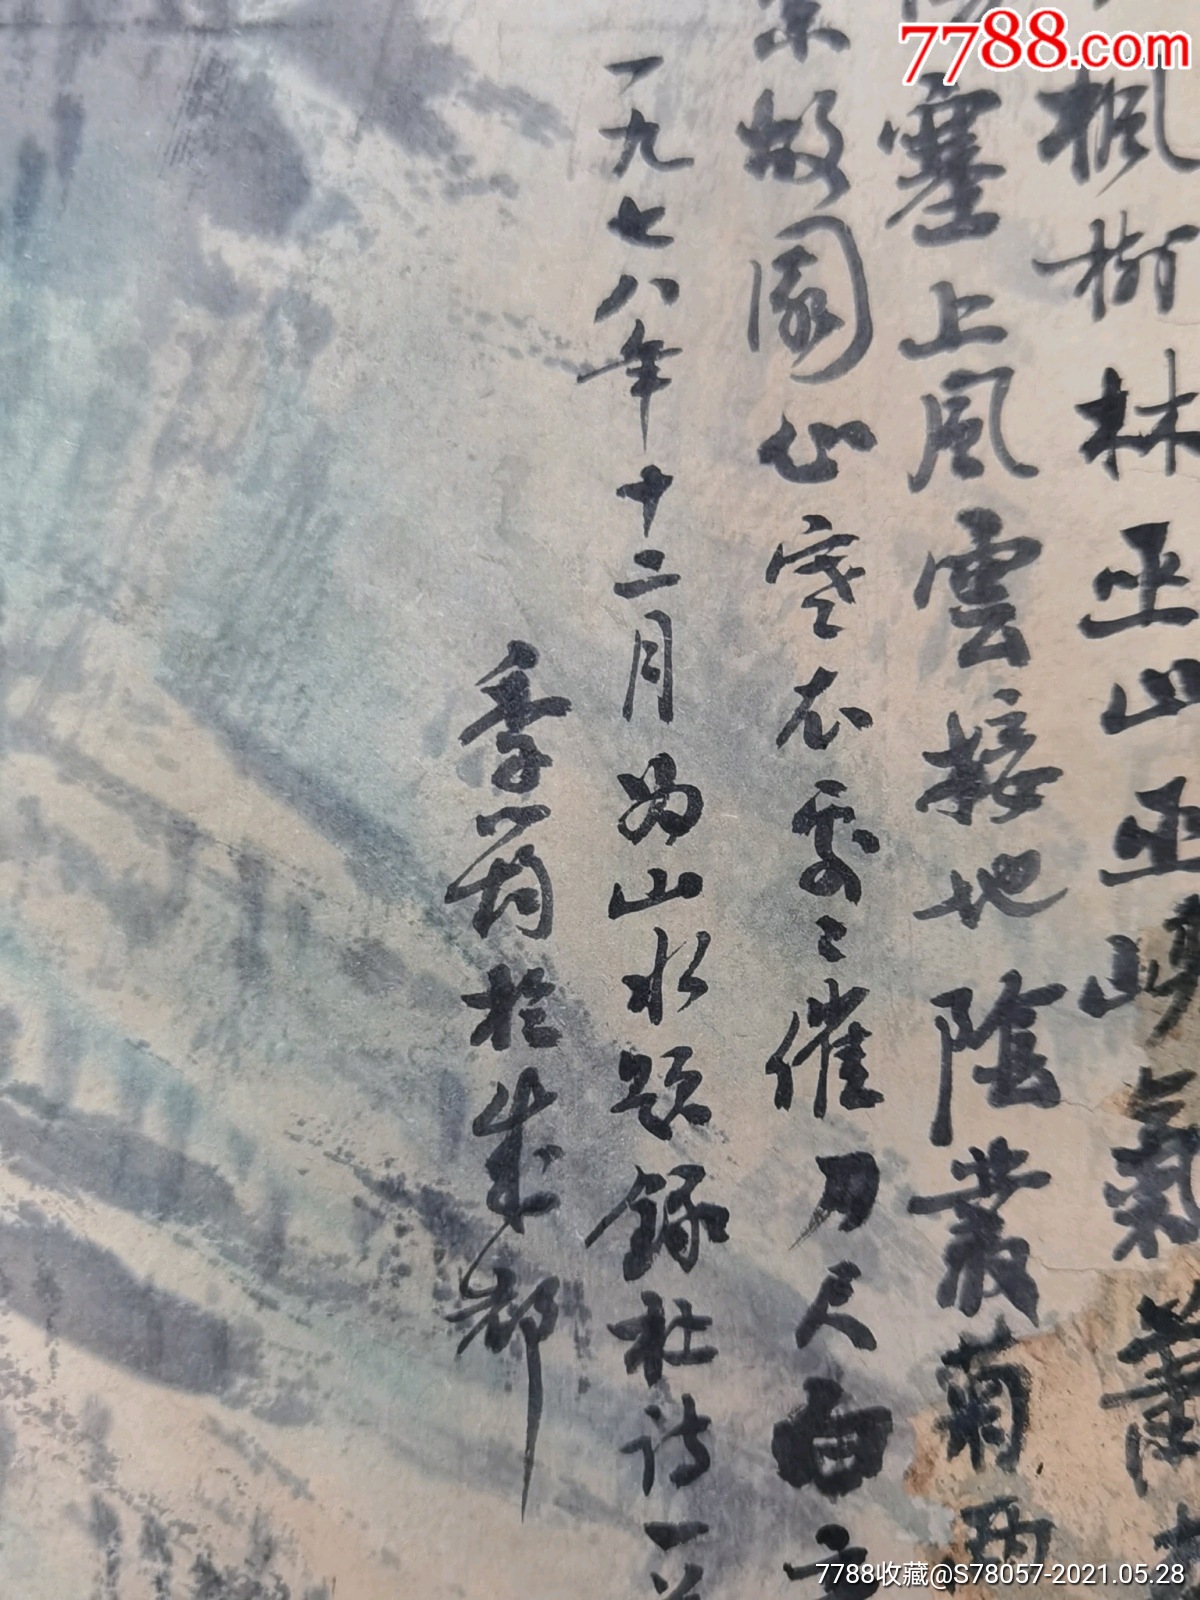 7788.com
枫树林巫山巫峡氣蕭
塞上風雲接地陰叢菊两
故園心寒衣處〻催刀尺白
一九七八年十二月为山水题録杜诗一首
季筠於成都
7788收藏@S78057-2021.05.28